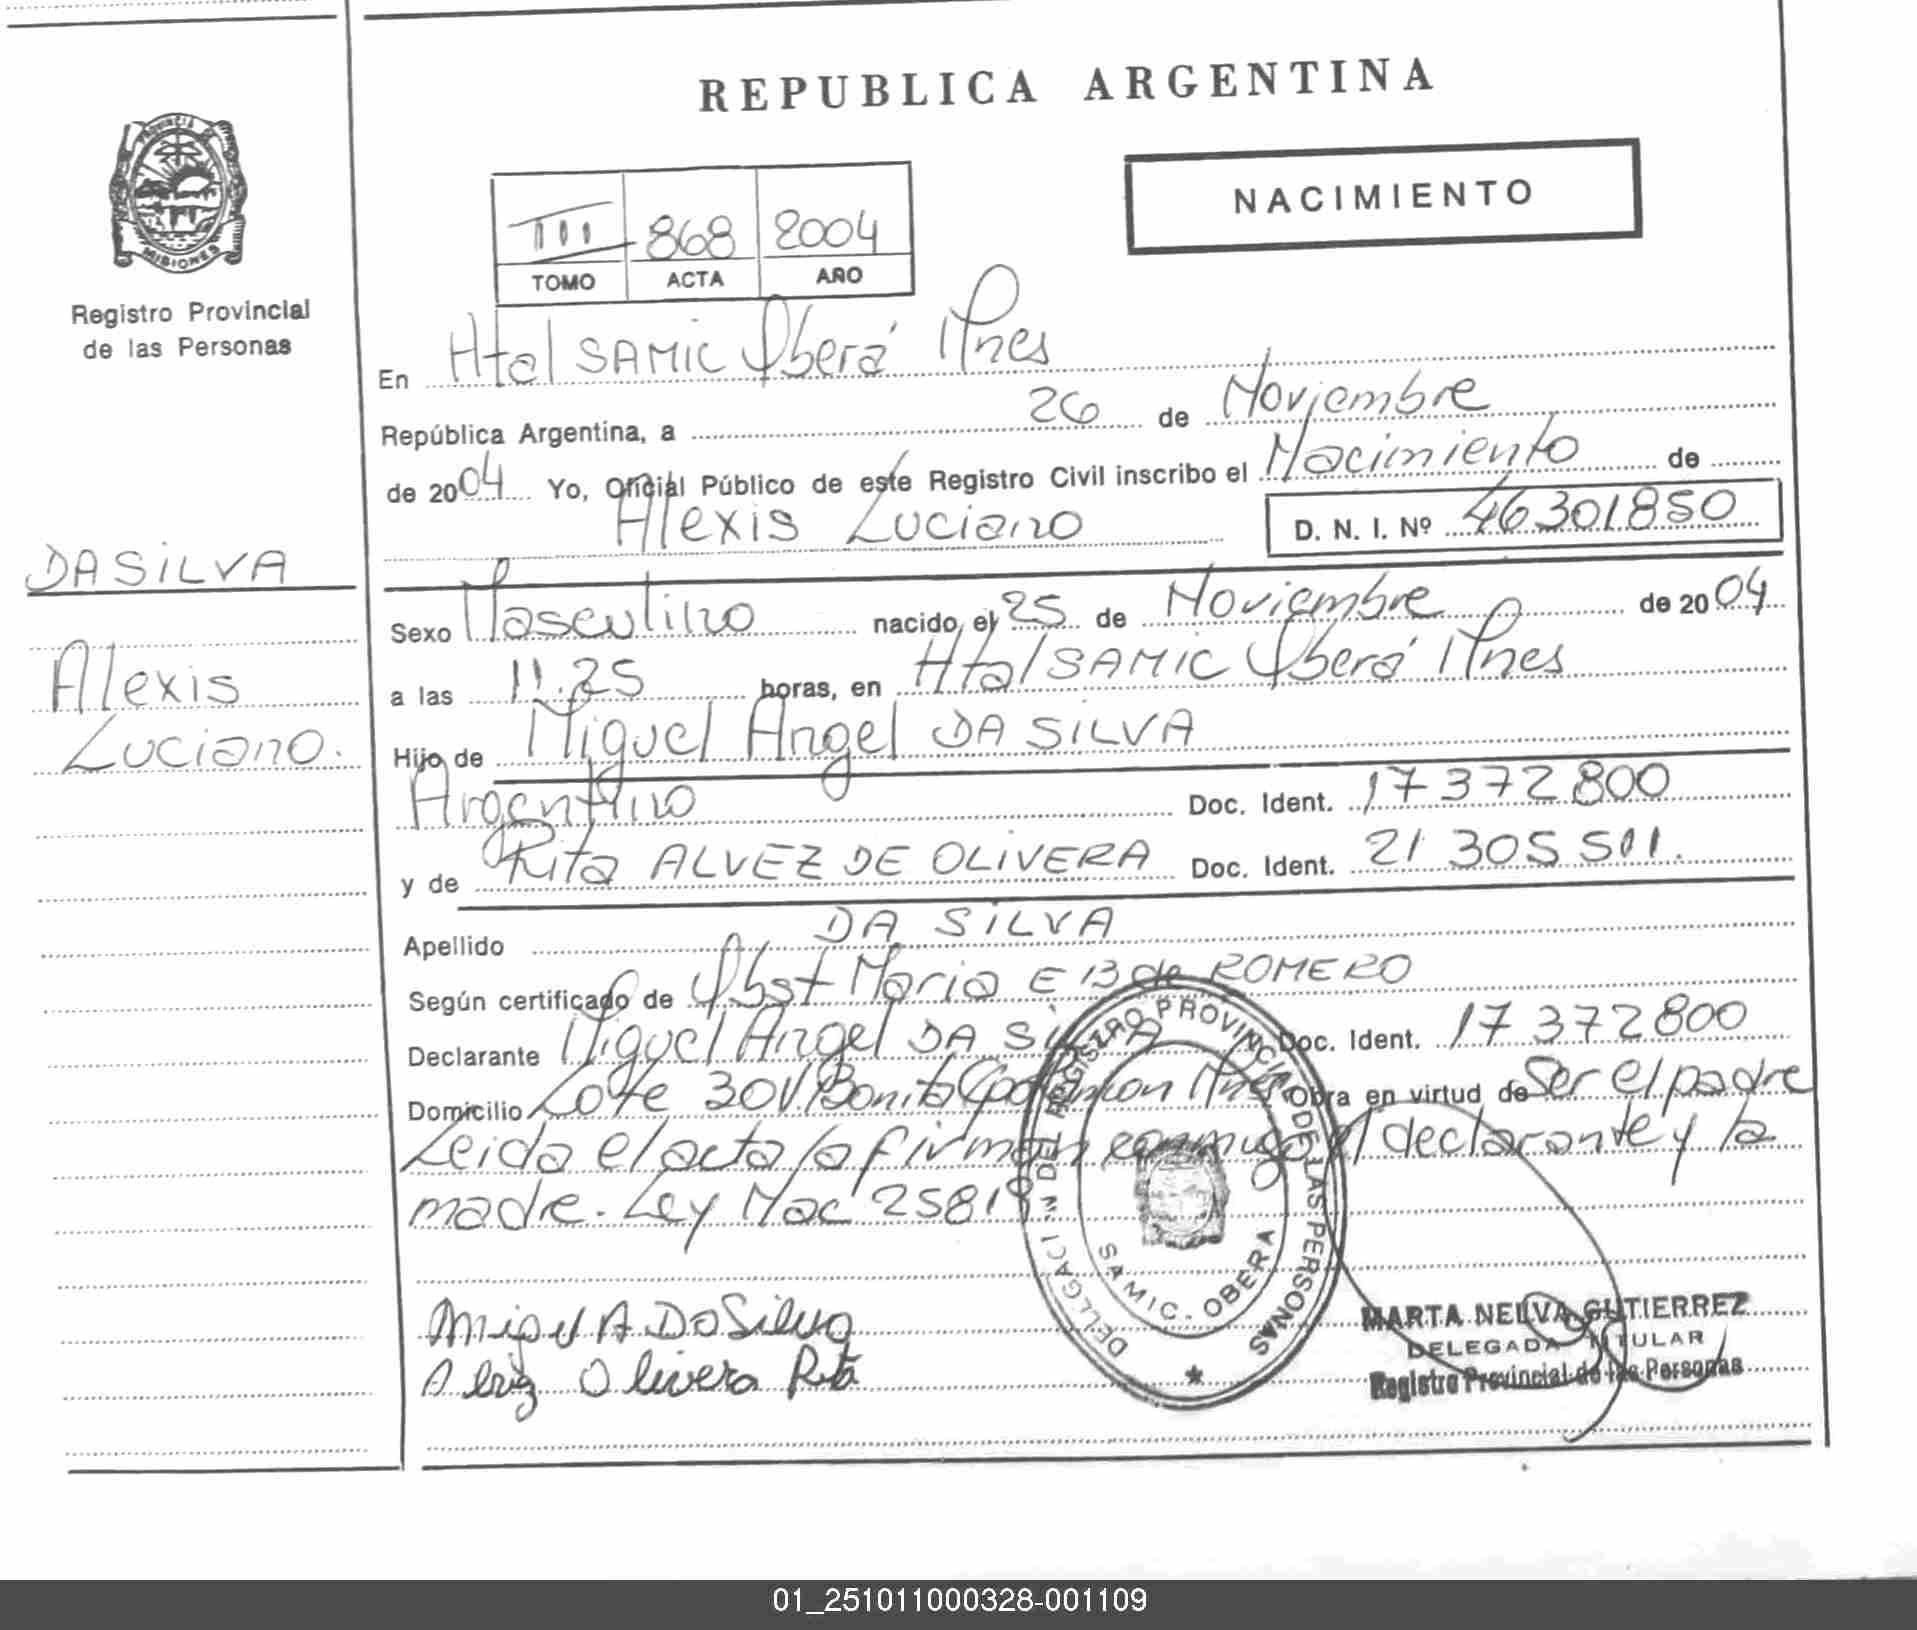 REPUBLICA ARGENTINA
NACIMIENTO
PROVINCIA DE
MISIONES
Registro Provincial
de las Personas
III 868 2004
TOMO ACTA AÑO
En Htal SAMIC Oberá Mnes
República Argentina, a 26 de Noviembre
de 2004 Yo, Oficial Público de este Registro Civil inscribo el Nacimiento de
Alexis Luciano D. N. I. Nº 46301850
DA SILVA
Alexis
Luciano.
Sexo Masculino nacido el 25 de Noviembre de 2004
a las 11.25 horas, en Htal SAMIC Oberá Mnes
Hijo de Miguel Angel DA SILVA
Argentino Doc. Ident. 17 372 800
y de Rita ALVEZ DE OLIVERA Doc. Ident. 21 305 511.
Apellido DA SILVA
Según certificado de Obst Maria E B de ROMERO
Declarante Miguel Angel DA SILVA Doc. Ident. 17 372 800
Domicilio Lote 30 V. Bonita Mnes Obra en virtud de Ser el padre
Leida el acta la firman conmigo el declarante y la
madre. Ley Nac 25819
DELEGACION DEL REGISTRO PROVINCIAL DE LAS PERSONAS
SAMIC. OBERA
Miguel A Da Silva
Alvez Olivera Rita
MARTA NELVA GUTIERREZ
DELEGADA TITULAR
Registro Provincial de las Personas
01_251011000328-001109